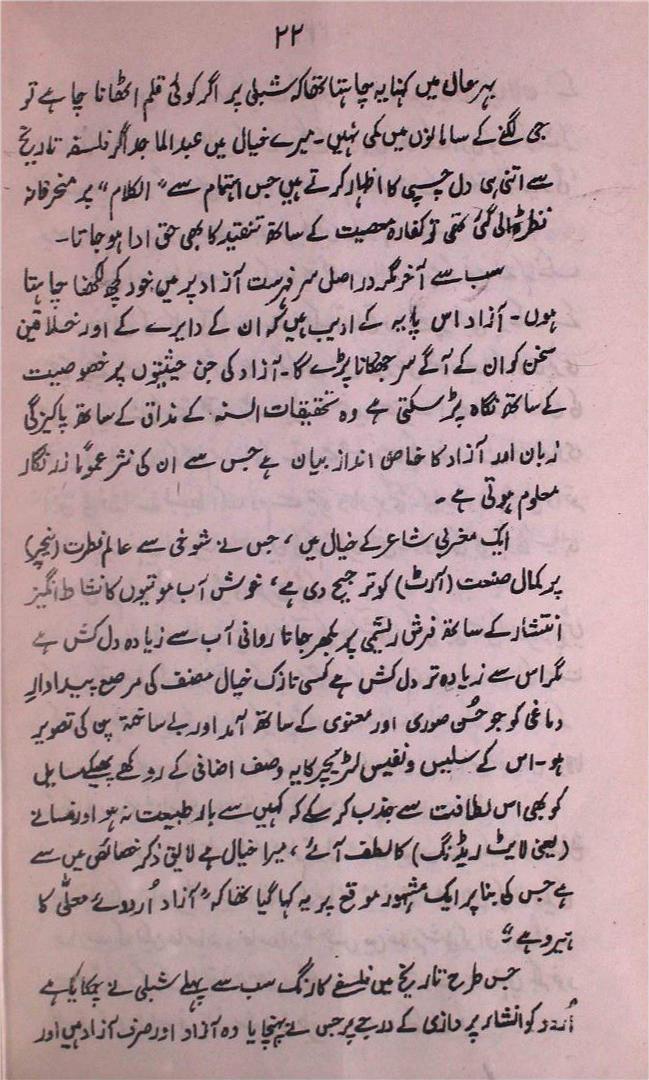 ۲۲
بہر حال میں کہنا یہ چاہتا تھا کہ شبلی پر اگر کوئی قلم اٹھانا چاہے تو
جی لگنے کے سامانوں میں کمی نہیں۔ میرے خیال میں عبدالماجد اگر فلسفۂ تاریخ
سے اتنی ہی دل چسپی کا اظہار کرتے ہیں جس اہتمام سے "الکلام" پر منحرفانہ
نظر ڈالی گئی تھی تو کفارہ معصیت کے ساتھ تنقید کا بھی حق ادا ہو جاتا۔
سب سے آخر مگر دراصل سر فہرست آزاد پر میں خود کچھ لکھنا چاہتا
ہوں۔ آزاد اس پایہ کے ادیب ہیں کہ ان کے دایرے کے اور خلاقین
سخن کو ان کے آگے سر جھکانا پڑے گا۔ آزاد کی جن حیثیتوں پر خصوصیت
کے ساتھ نگاہ پڑ سکتی ہے وہ تحقیقات السنہ کے مذاق کے ساتھ پاکیزگی
زبان اور آزاد کا خاص انداز بیان ہے جس سے ان کی نثر عموماً زرنگار
معلوم ہوتی ہے۔
ایک مغربی شاعر کے خیال میں، جس نے شوخی سے عالم فطرت (نیچر)
پر کمال صنعت (آرٹ) کو ترجیح دی ہے، خوش آب موتیوں کا نشاط انگیز
انتشار کے ساتھ فرش ریشمی پر بکھر جانا روانی آب سے زیادہ دل کش ہے
مگر اس سے زیادہ تر دل کش ہے کسی نازک خیال مصنف کی مرصع پیداوار
دماغی کو جو حُسن صوری اور معنوی کے ساتھ آمد اور بے ساختہ پن کی تصویر
ہو۔ اس کے سلیس و نفیس لٹریچر کا یہ وصف اضافی کے روکھے پھیکے مسایل
کو بھی اس لطافت سے جذب کر سکے کہ کہیں سے بار طبیعت نہ ہو اور فسانے
(یعنی لایٹ ریڈنگ) کا لطف آئے، میرا خیال ہے لایق ذکر خصائص میں سے
ہے جس کی بنا پر ایک مشہور موقع پر یہ کہا گیا تھا کہ "آزاد اُردوئے معلّٰی کا
ہیرو ہے"
جس طرح تاریخ میں فلسفے کا رنگ سب سے پہلے شبلی نے چمکایا ہے
اُردو کو انشاء پردازی کے درجے پر جس نے پہنچایا وہ آزاد اور صرف آزاد ہیں اور